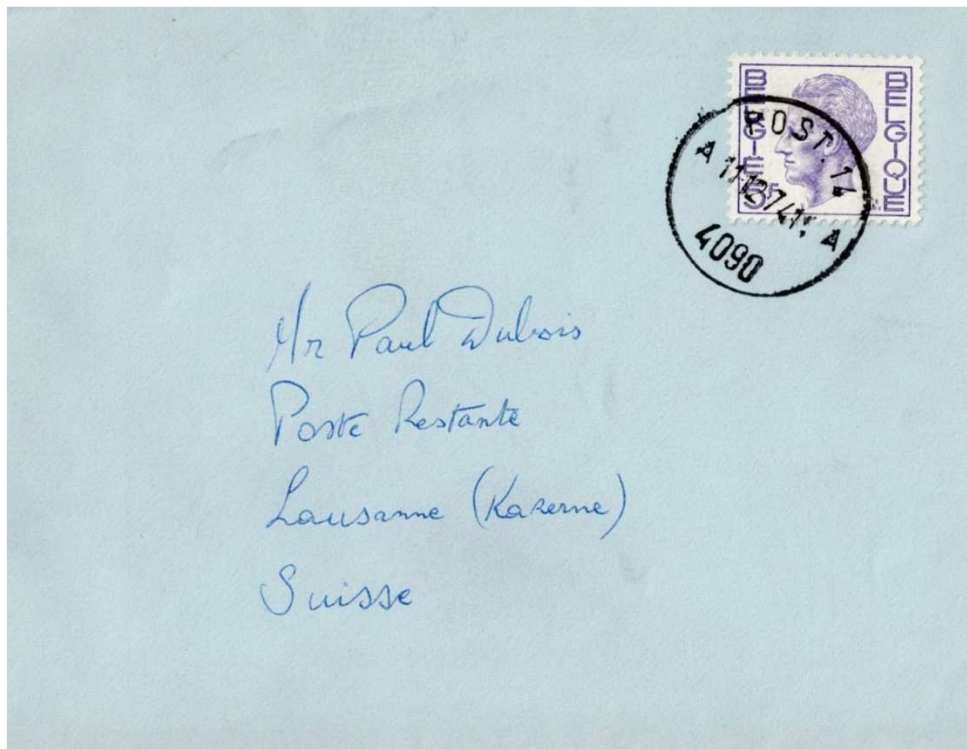 BELGIË BELGIQUE
POST.14
A 11 12 74 A
4090
Mr Paul Dubois
Poste Restante
Lausanne (Kazerne)
Suisse